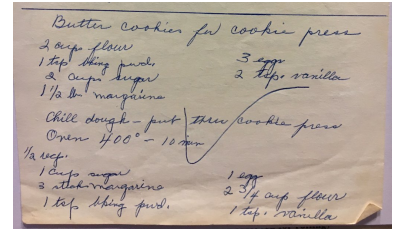 Butter cookies for cookie press
2 cups flour
1 tsp bking pwd.
2 cups sugar
1 1/2 lb. margarine
3 eggs
2 tsp. vanilla
Chill dough - put thru cookie press
Oven 400° - 10 min
1/2 recp.
1 cup sugar
3 sticks margarine
1 tsp bking pwd.
1 egg
2 3/4 cup flour
1 tsp. vanilla